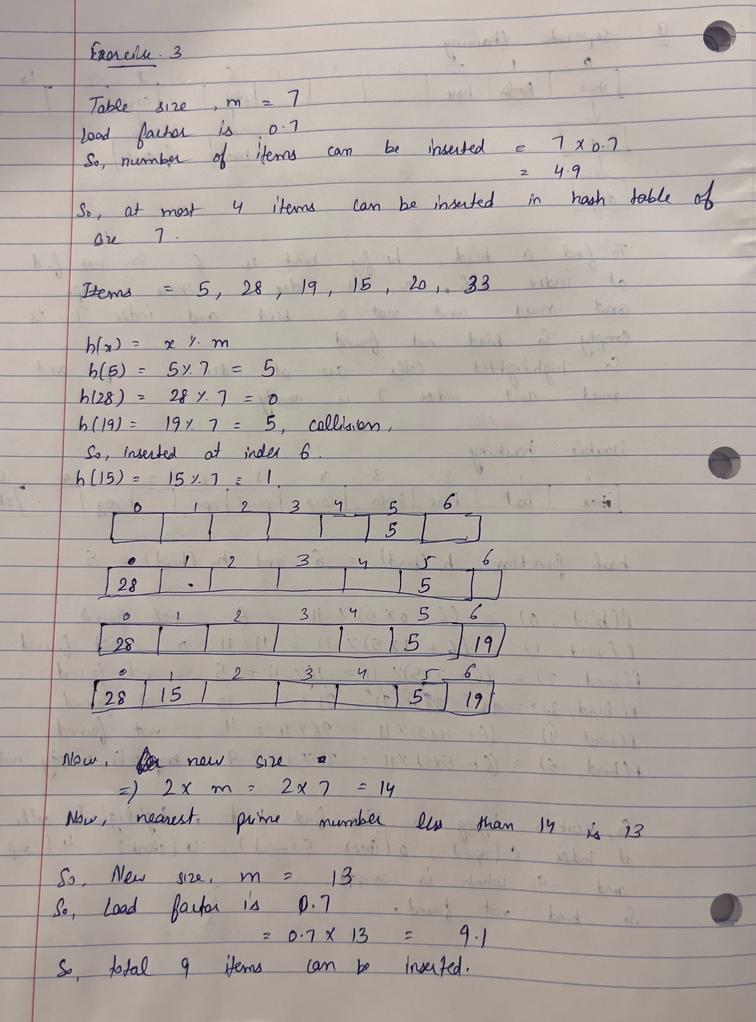 Exercise 3
Table size, m = 7
Load factor is 0.7
So, number of items can be inserted = 7 x 0.7
= 4.9
So, at most 4 items can be inserted in hash table of
size 7.
Items = 5, 28, 19, 15, 20, 33
h(x) = x % m
h(5) = 5 % 7 = 5
h(28) = 28 % 7 = 0
h(19) = 19 % 7 = 5, collision,
So, inserted at index 6.
h(15) = 15 % 7 = 1.
0 1 2 3 4 5 6
5
0 1 2 3 4 5 6
28 5
0 1 2 3 4 5 6
28 5 19
0 1 2 3 4 5 6
28 15 5 19
Now, new size
=) 2 x m = 2 x 7 = 14
Now, nearest prime number less than 14 is 13
So, New size, m = 13
So, Load factor is 0.7
= 0.7 x 13 = 9.1
So, total 9 items can be inserted.